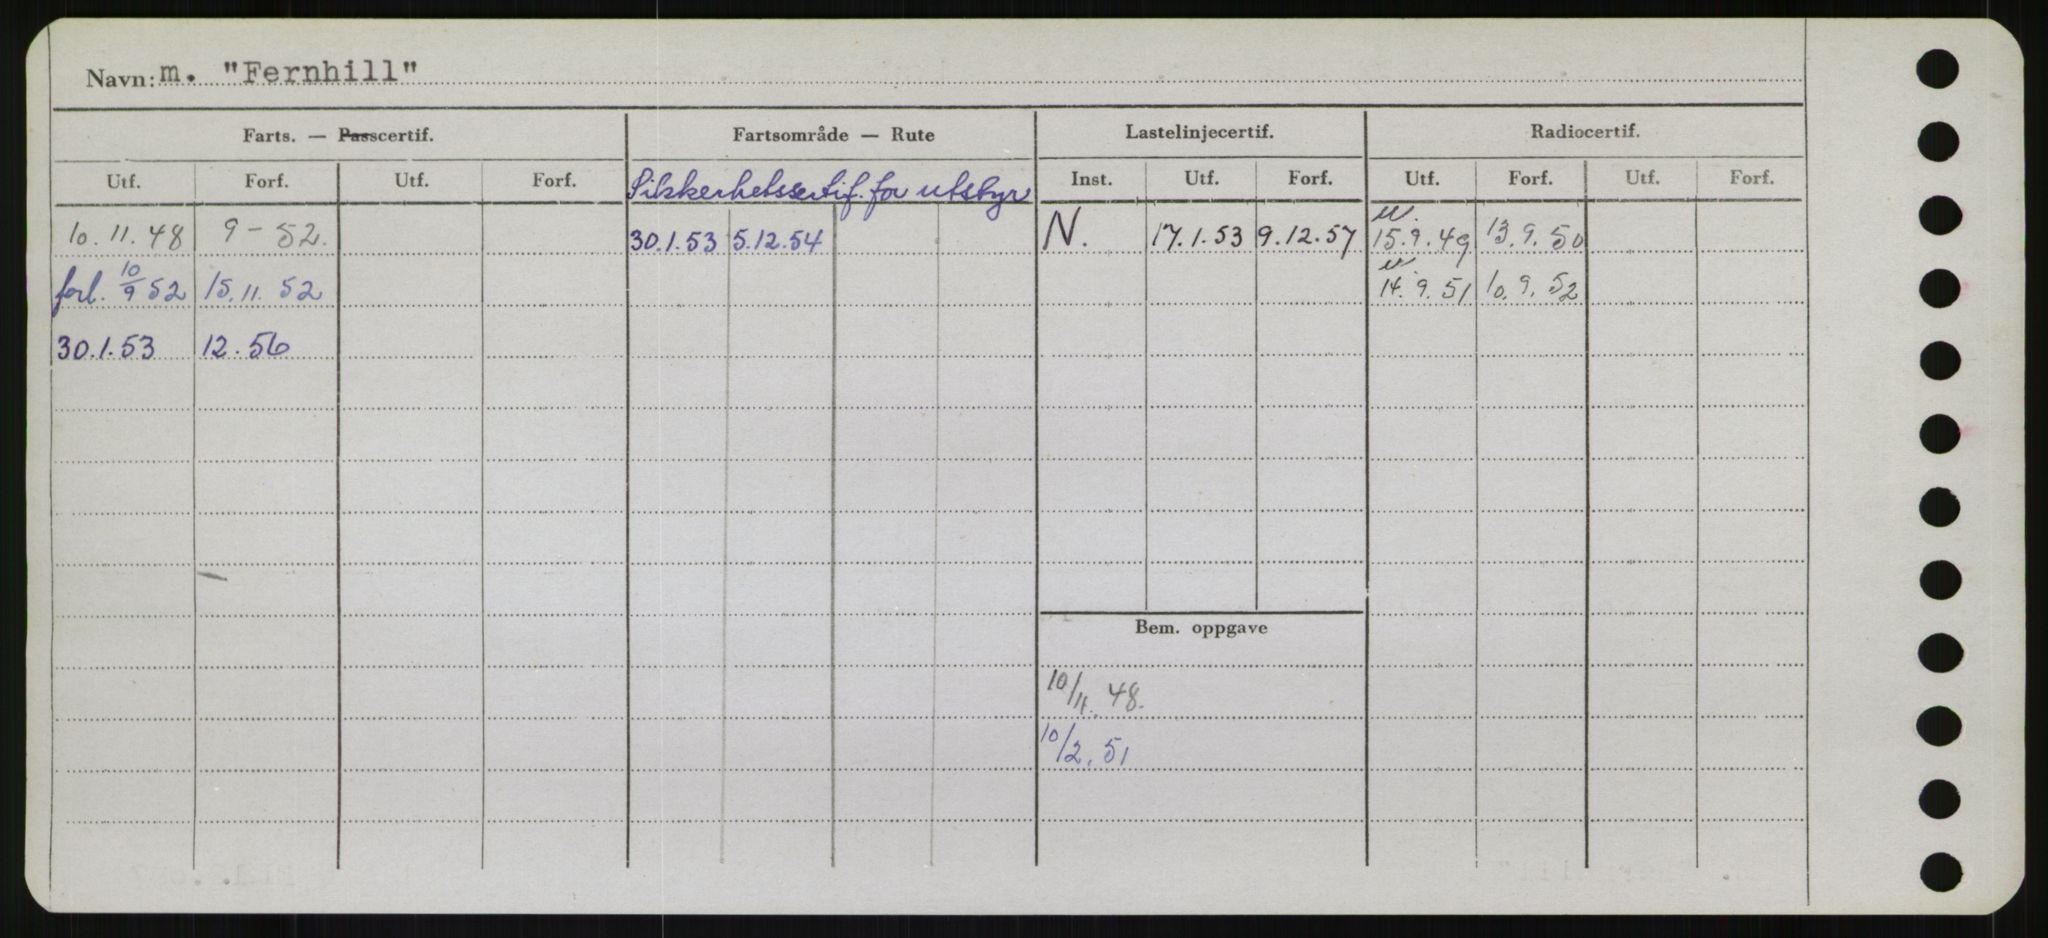 Navn: m. "Fernhill"
Farts. — Passcertif. Fartsområde — Rute Lastelinjecertif. Radiocertif.
Utf. Forf. Utf. Forf. Sikkerhetssertif. for utstyr Inst. Utf. Forf. Utf. Forf. Utf. Forf.
10.11.48 9-52. 30.1.53 5.12.54 N. 17.1.53 9.12.57 15.9.49 13.9.50
forl. 10/9 52 15.11.52 14.9.51 10.9.52
30.1.53 12.56
Bem. oppgave
10/11.48.
10/2.51